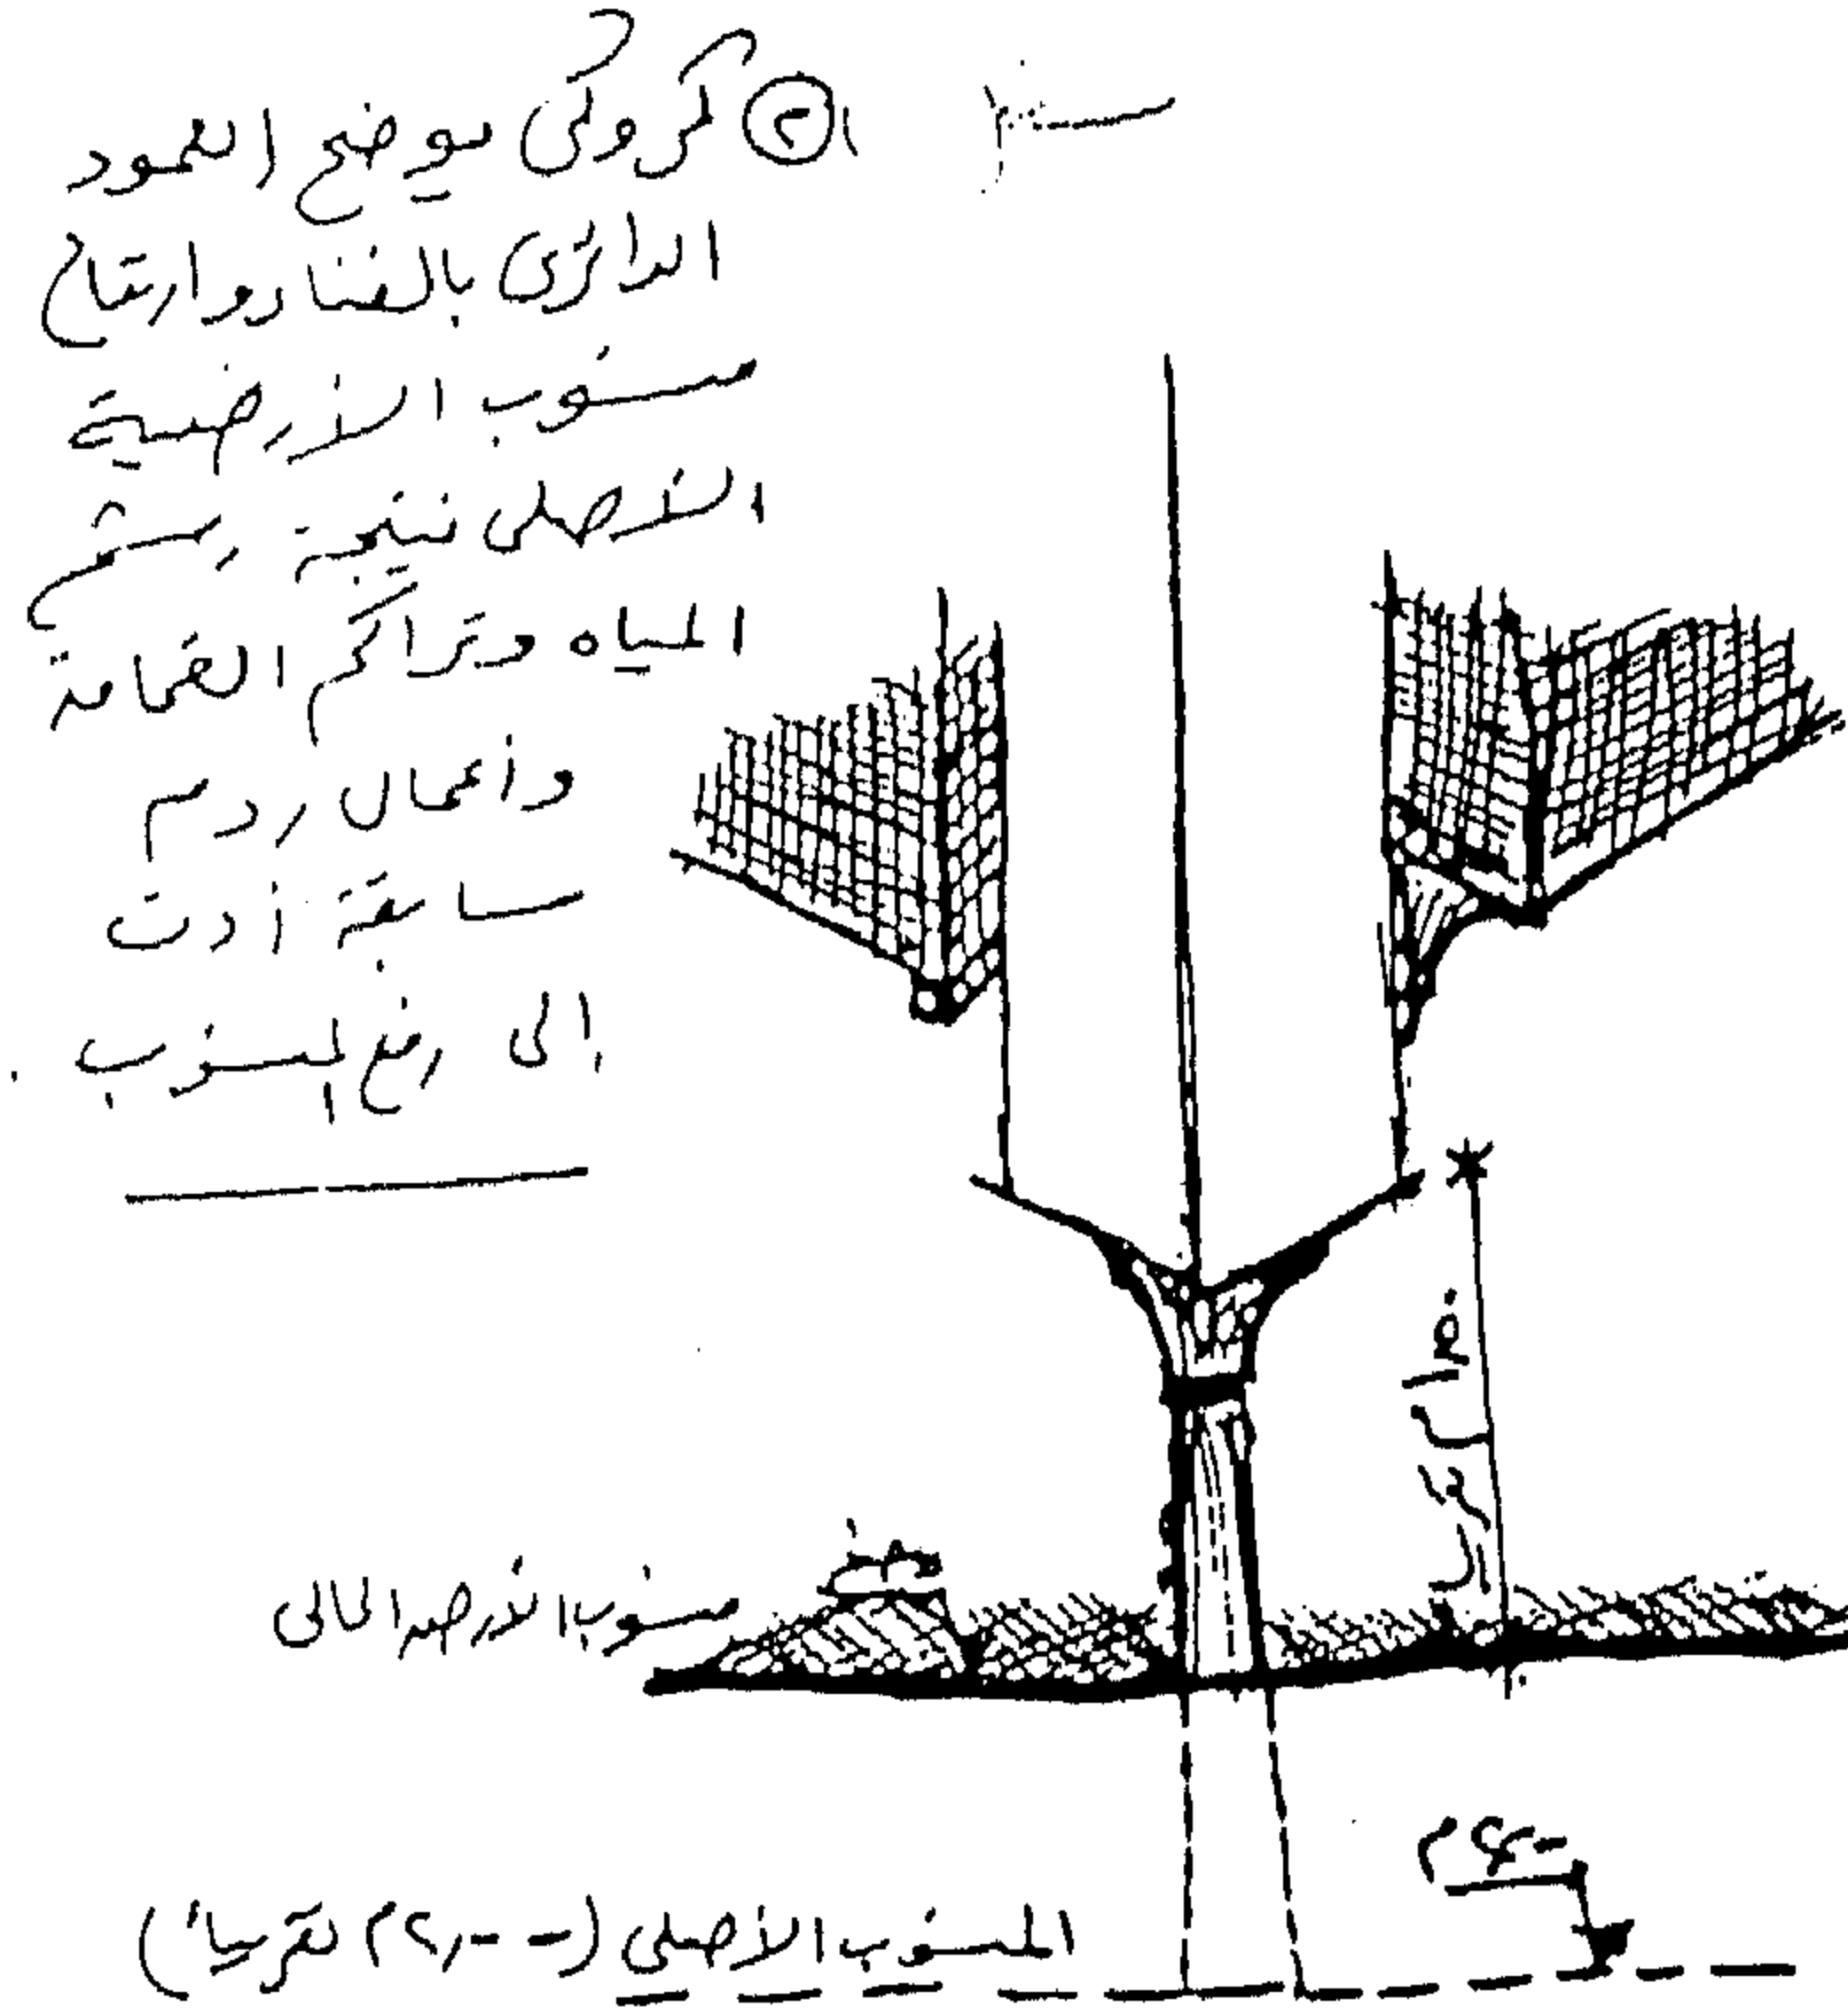 (٢) كروكى يوضح العمود
الدائرى بالفناء وارتفاع
منسوب الأرضية
الأصلى نتيجة
المياه وتراكم القمامة
وأعمال ردم
سابقة أدت
إلى رفع المنسوب .
منسوب الأرض الحالى
المنسوب الأصلى (-٢٫٠٠ م تقريباً)